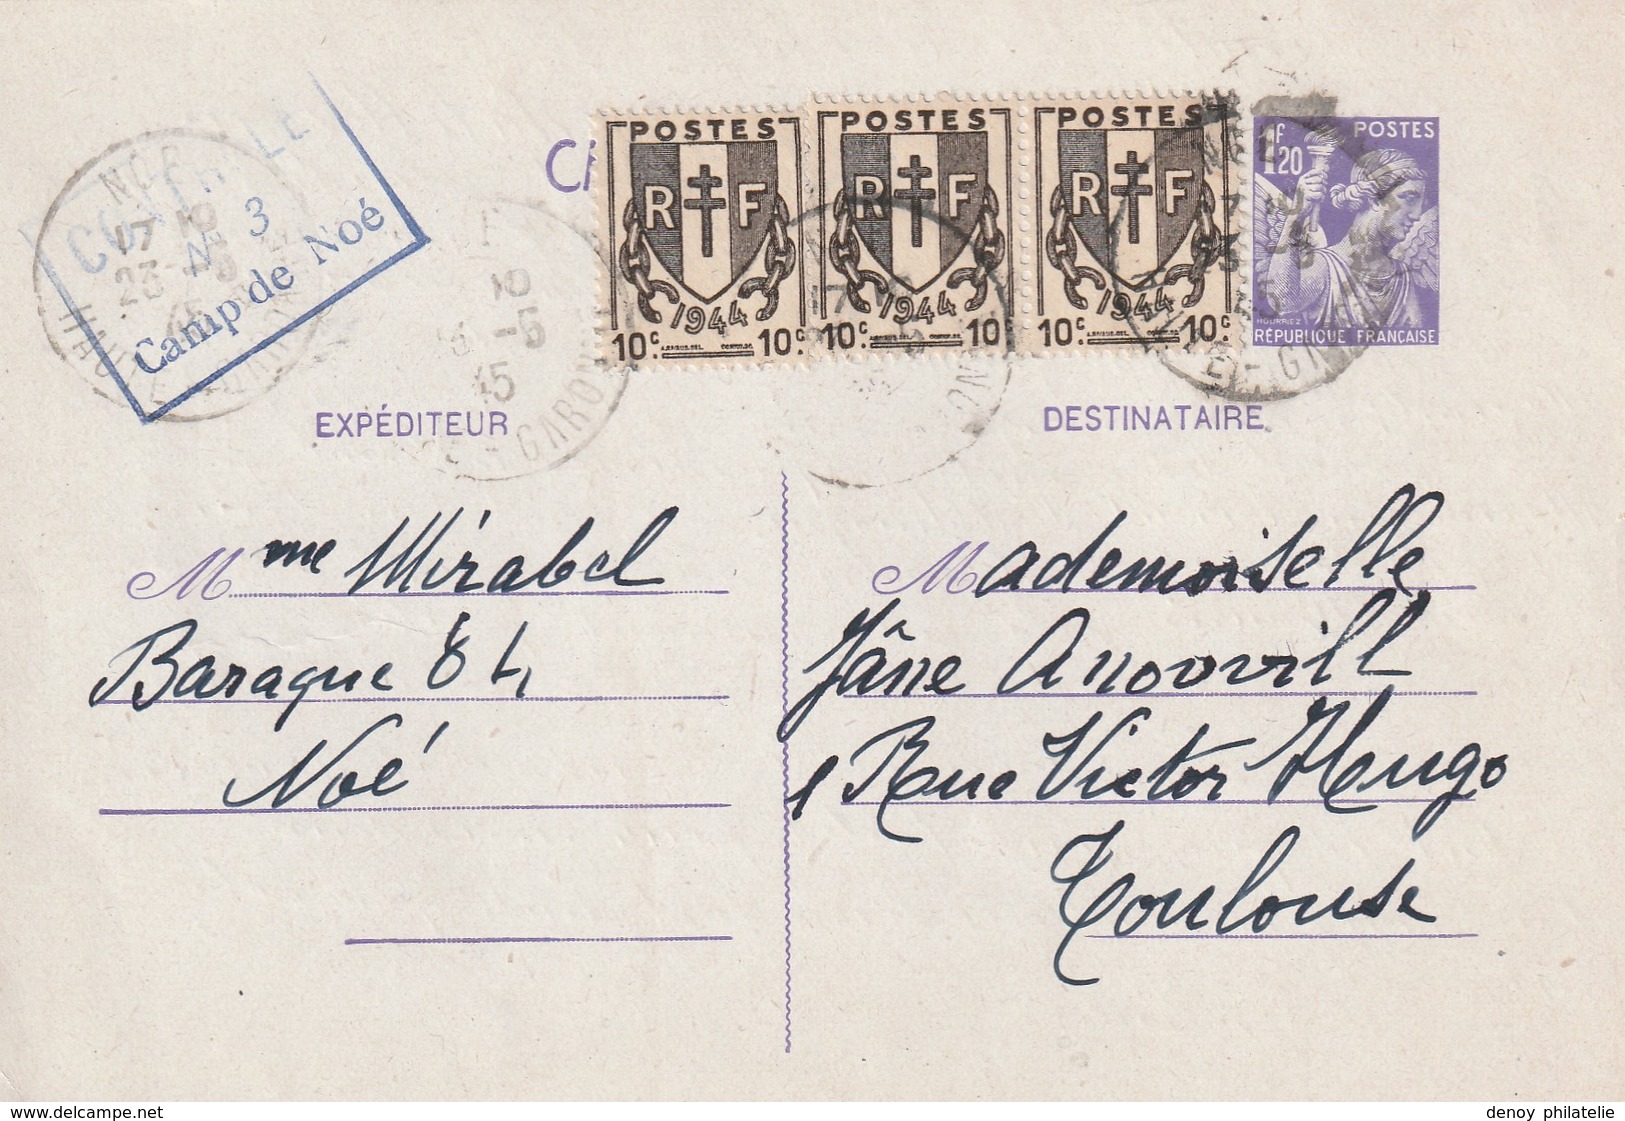 CONTRÔLE
N° 3
Camp de Noé
NOÉ
17 10
23 -5
45
HAUTE-GARONNE
10
-5
45
GARONNE
17
POSTES
RF
1944
10c. 10c.
POSTES
RF
1944
10c. 10c.
POSTES
RF
1944
10c. 10c.
POSTES
1f20
HOURRIEZ
RÉPUBLIQUE FRANÇAISE
EXPÉDITEUR
Mme Mirabel
Baraque 84
Noé
DESTINATAIRE
Mademoiselle
Jâne
1 Rue Victor Hugo
Toulouse
www.delcampe.net
denoy philatelie